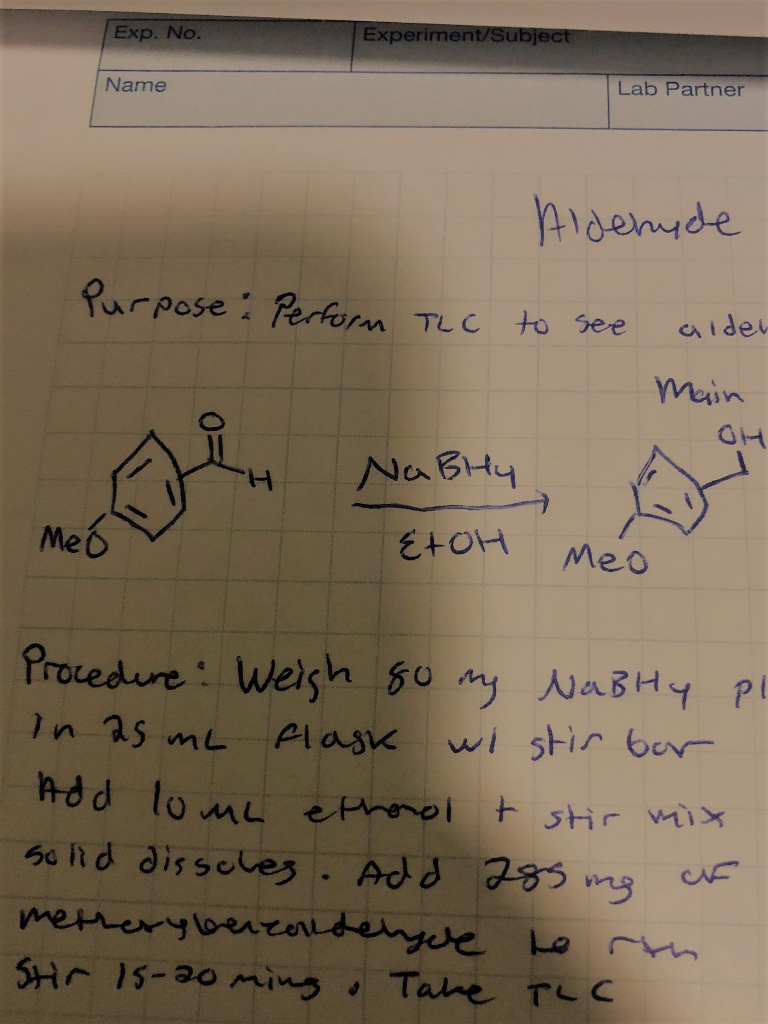 Exp. No. Experiment/Subject
Name Lab Partner
Aldehyde
Purpose: Perform TLC to see aldeh
Main
O OH
H NaBH4
MeO EtOH MeO
Procedure: Weigh 80 mg NaBH4 pl
in 25 mL flask w/ stir bar
Add 10 mL ethanol + stir mix
solid dissolves. Add 285 mg of
methoxybenzaldehyde to rxn
Stir 15-20 mins. Take TLC